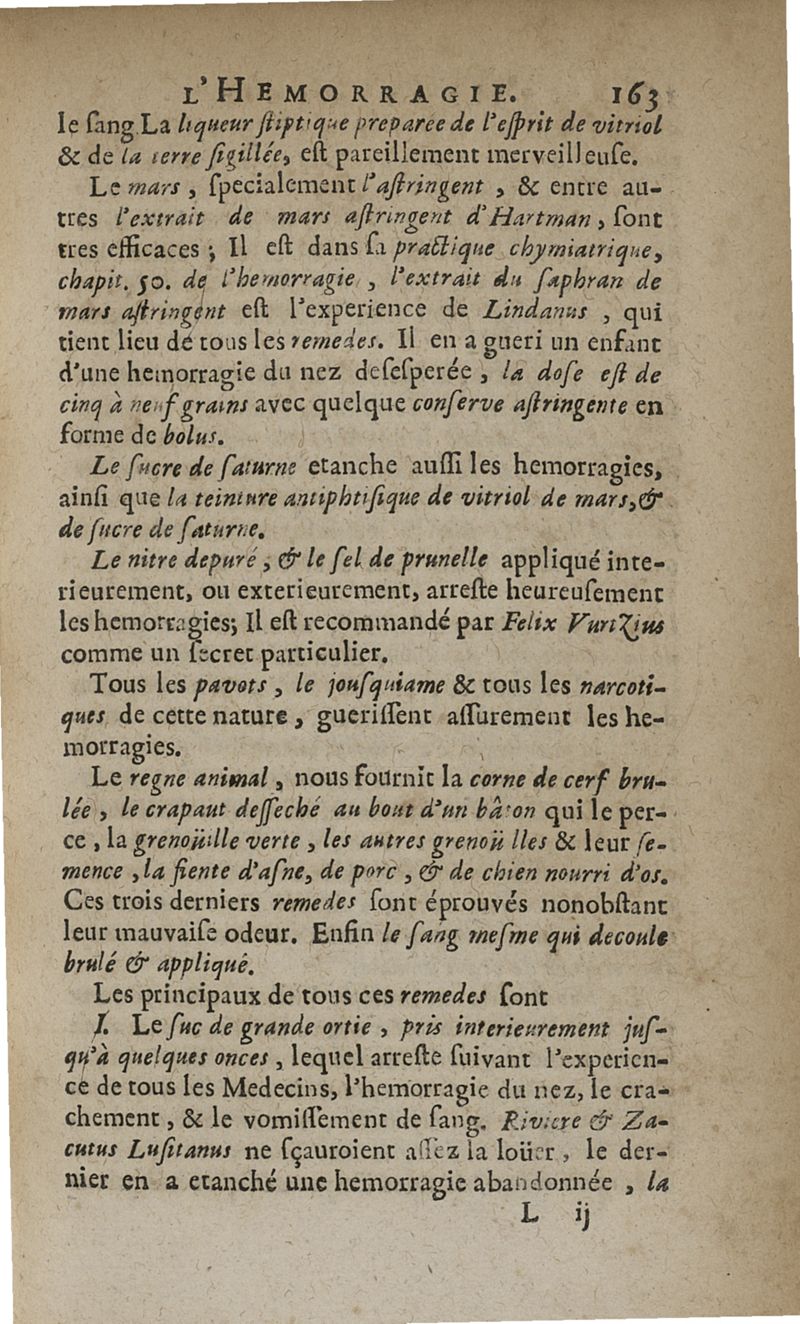 L'HEMORRAGIE. 163
le ſang. La liqueur ſtiptique preparee de l'eſprit de vitriol
& de la terre ſigillée, eſt pareillement merveilleuſe.
Le mars, ſpecialement l'aſtringent, & entre au-
tres l'extrait de mars aſtringent d'Hartman, ſont
tres efficaces ; Il eſt dans ſa practique chymiatrique,
chapit. 50. de l'hemorragie, l'extrait du ſaphran de
mars aſtringent eſt l'experience de Lindanus, qui
tient lieu de tous les remedes. Il en a gueri un enfant
d'une hemorragie du nez deſeſperée, la doſe eſt de
cinq à neuf grains avec quelque conſerve aſtringente en
forme de bolus.
Le ſucre de ſaturne etanche auſſi les hemorragies,
ainſi que la teinture antiphtiſique de vitriol de mars, &
de ſucre de ſaturne.
Le nitre depuré, & le ſel de prunelle appliqué inte-
rieurement, ou exterieurement, arreſte heureuſement
les hemorragies; Il eſt recommandé par Felix VuriZius
comme un ſecret particulier.
Tous les pavots, le jouſquiame & tous les narcoti-
ques de cette nature, gueriſſent aſſurement les he-
morragies.
Le regne animal, nous fournit la corne de cerf bru-
lée, le crapaut deſſeché au bout d'un bâton qui le per-
ce, la grenoüille verte, les autres grenoüilles & leur ſe-
mence, la fiente d'aſne, de porc, & de chien nourri d'os.
Ces trois derniers remedes ſont éprouvés nonobſtant
leur mauvaiſe odeur. Enfin le ſang meſme qui decoule
brulé & appliqué.
Les principaux de tous ces remedes ſont
I. Le ſuc de grande ortie, pris interieurement juſ-
qu'à quelques onces, lequel arreſte ſuivant l'experien-
ce de tous les Medecins, l'hemorragie du nez, le cra-
chement, & le vomiſſement de ſang. Riviere & Za-
cutus Luſitanus ne ſçauroient aſſez la loüer, le der-
nier en a etanché une hemorragie abandonnée, la
L ij